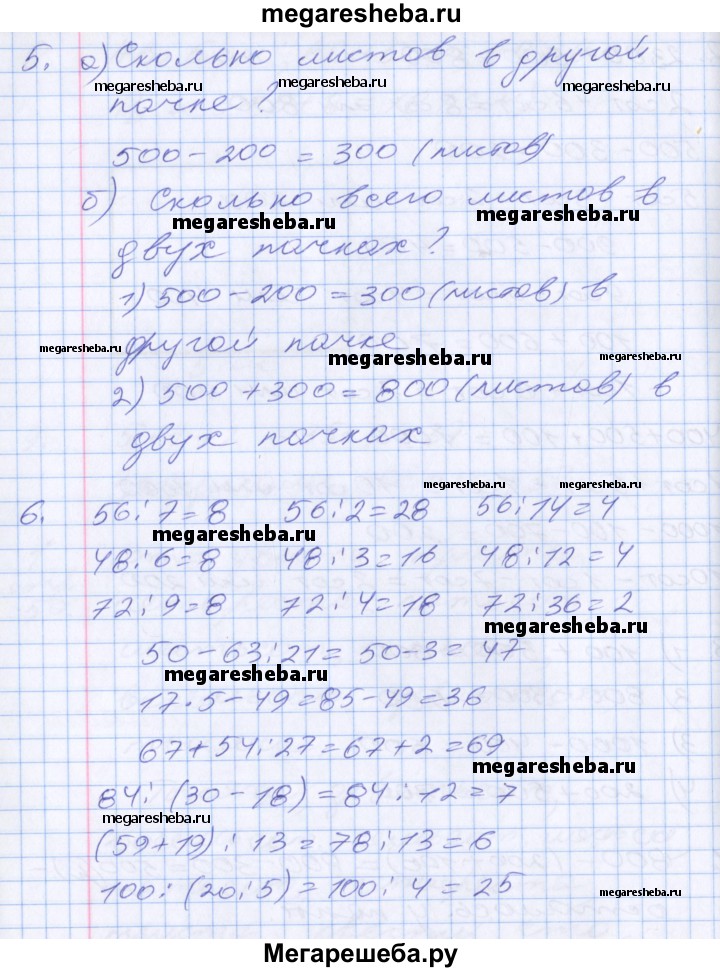 megaresheba.ru
5. а) Сколько листов в другой
megaresheba.ru megaresheba.ru megaresheba.ru
пачке?
500 - 200 = 300 (листов)
б) Сколько всего листов в
megaresheba.ru megaresheba.ru
двух пачках?
1) 500 - 200 = 300 (листов) в
другой пачке
megaresheba.ru megaresheba.ru megaresheba.ru
2) 500 + 300 = 800 (листов) в
двух пачках
megaresheba.ru megaresheba.ru
6. 56:7=8 56:2=28 56:14=4
megaresheba.ru
48:6=8 48:3=16 48:12=4
72:9=8 72:4=18 72:36=2
megaresheba.ru
50-63:21=50-3=47
megaresheba.ru
17·5-49=85-49=36
67+54:27=67+2=69
megaresheba.ru
84:(30-18)=84:12=7
megaresheba.ru
(59+19):13=78:13=6
100:(20:5)=100:4=25
megaresheba.ru
Мегарешеба.ру